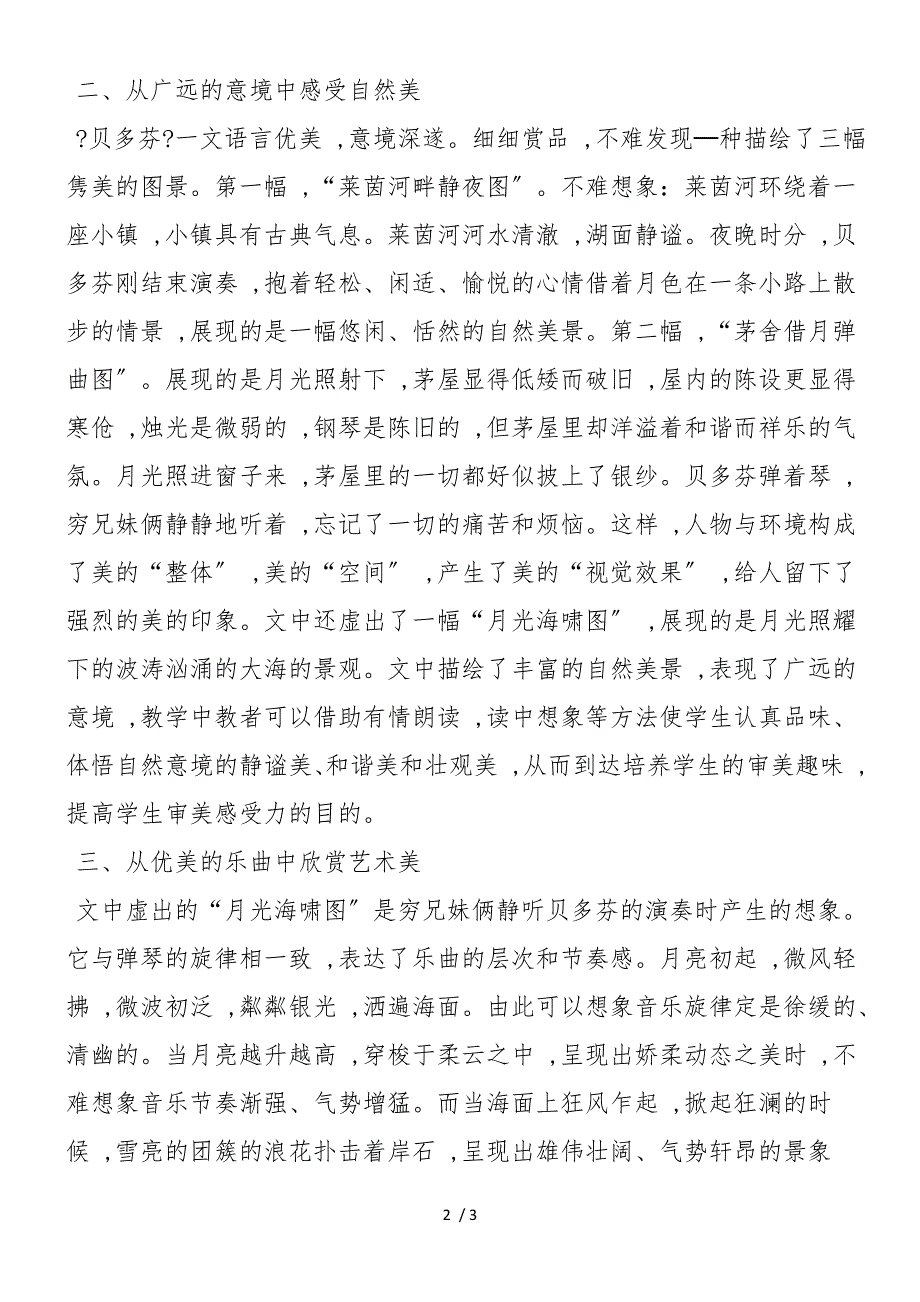 二、从广远的意境中感受自然美
?贝多芬?一文语言优美 ,意境深遂。细细赏品 ,不难发现一种描绘了三幅
隽美的图景。第一幅 ,“莱茵河畔静夜图〞。不难想象：莱茵河环绕着一
座小镇 ,小镇具有古典气息。莱茵河河水清澈 ,湖面静谧。夜晚时分 ,贝
多芬刚结束演奏 ,抱着轻松、闲适、愉悦的心情借着月色在一条小路上散
步的情景 ,展现的是一幅悠闲、恬然的自然美景。第二幅 ,“茅舍借月弹
曲图〞。展现的是月光照射下 ,茅屋显得低矮而破旧 ,屋内的陈设更显得
寒伧 ,烛光是微弱的 ,钢琴是陈旧的 ,但茅屋里却洋溢着和谐而祥乐的气
氛。月光照进窗子来 ,茅屋里的一切都好似披上了银纱。贝多芬弹着琴 ,
穷兄妹俩静静地听着 ,忘记了一切的痛苦和烦恼。这样 ,人物与环境构成
了美的“整体〞 ,美的“空间〞 ,产生了美的“视觉效果〞 ,给人留下了
强烈的美的印象。文中还虚出了一幅“月光海啸图〞 ,展现的是月光照耀
下的波涛汹涌的大海的景观。文中描绘了丰富的自然美景 ,表现了广远的
意境 ,教学中教者可以借助有情朗读 ,读中想象等方法使学生认真品味、
体悟自然意境的静谧美、和谐美和壮观美 ,从而到达培养学生的审美趣味 ,
提高学生审美感受力的目的。
三、从优美的乐曲中欣赏艺术美
文中虚出的“月光海啸图〞是穷兄妹俩静听贝多芬的演奏时产生的想象。
它与弹琴的旋律相一致 ,表达了乐曲的层次和节奏感。月亮初起 ,微风轻
拂 ,微波初泛 ,粼粼银光 ,洒遍海面。由此可以想象音乐旋律定是徐缓的、
清幽的。当月亮越升越高 ,穿梭于柔云之中 ,呈现出娇柔动态之美时 ,不
难想象音乐节奏渐强、气势增猛。而当海面上狂风乍起 ,掀起狂澜的时
候 ,雪亮的团簇的浪花扑击着岸石 ,呈现出雄伟壮阔、气势轩昂的景象
2 / 3